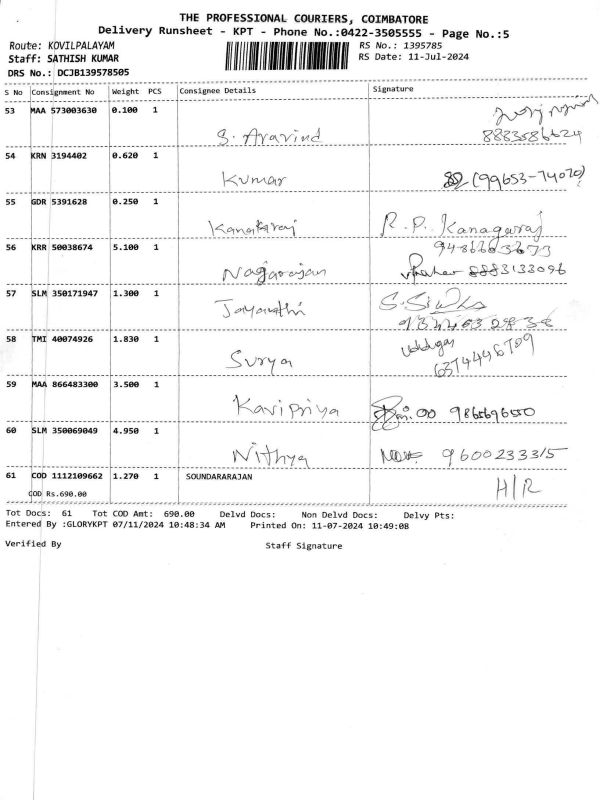 THE PROFESSIONAL COURIERS, COIMBATORE
Delivery Runsheet - KPT - Phone No.:0422-3505555 - Page No.:5
Route: KOVILPALAYAM
RS No.: 1395785
Staff: SATHISH KUMAR
RS Date: 11-Jul-2024
DRS No.: DCJB139578505
S No Consignment No Weight PCS Consignee Details Signature
53 MAA 573003630 0.100 1
S. Aravind 8883586624
54 KRN 3194402 0.620 1
Kumar (99653-74070)
55 GDR 5391628 0.250 1
Kanakaraj R. P. Kanagaraj
56 KRR 50038674 5.100 1
Nagarajan 8883133096
57 SLM 350171947 1.300 1
Jayanthi
58 TMI 40074926 1.830 1
Surya 6374446709
59 MAA 866483300 3.500 1
Kavipriya 9865696550
60 SLM 350069049 4.950 1
Nithya 9600233315
61 COD 1112109662 1.270 1 SOUNDARARAJAN
H/R
COD Rs.690.00
Tot Docs: 61 Tot COD Amt: 690.00 Delvd Docs: Non Delvd Docs: Delvy Pts:
Entered By :GLORYKPT 07/11/2024 10:48:34 AM Printed On: 11-07-2024 10:49:08
Verified By Staff Signature